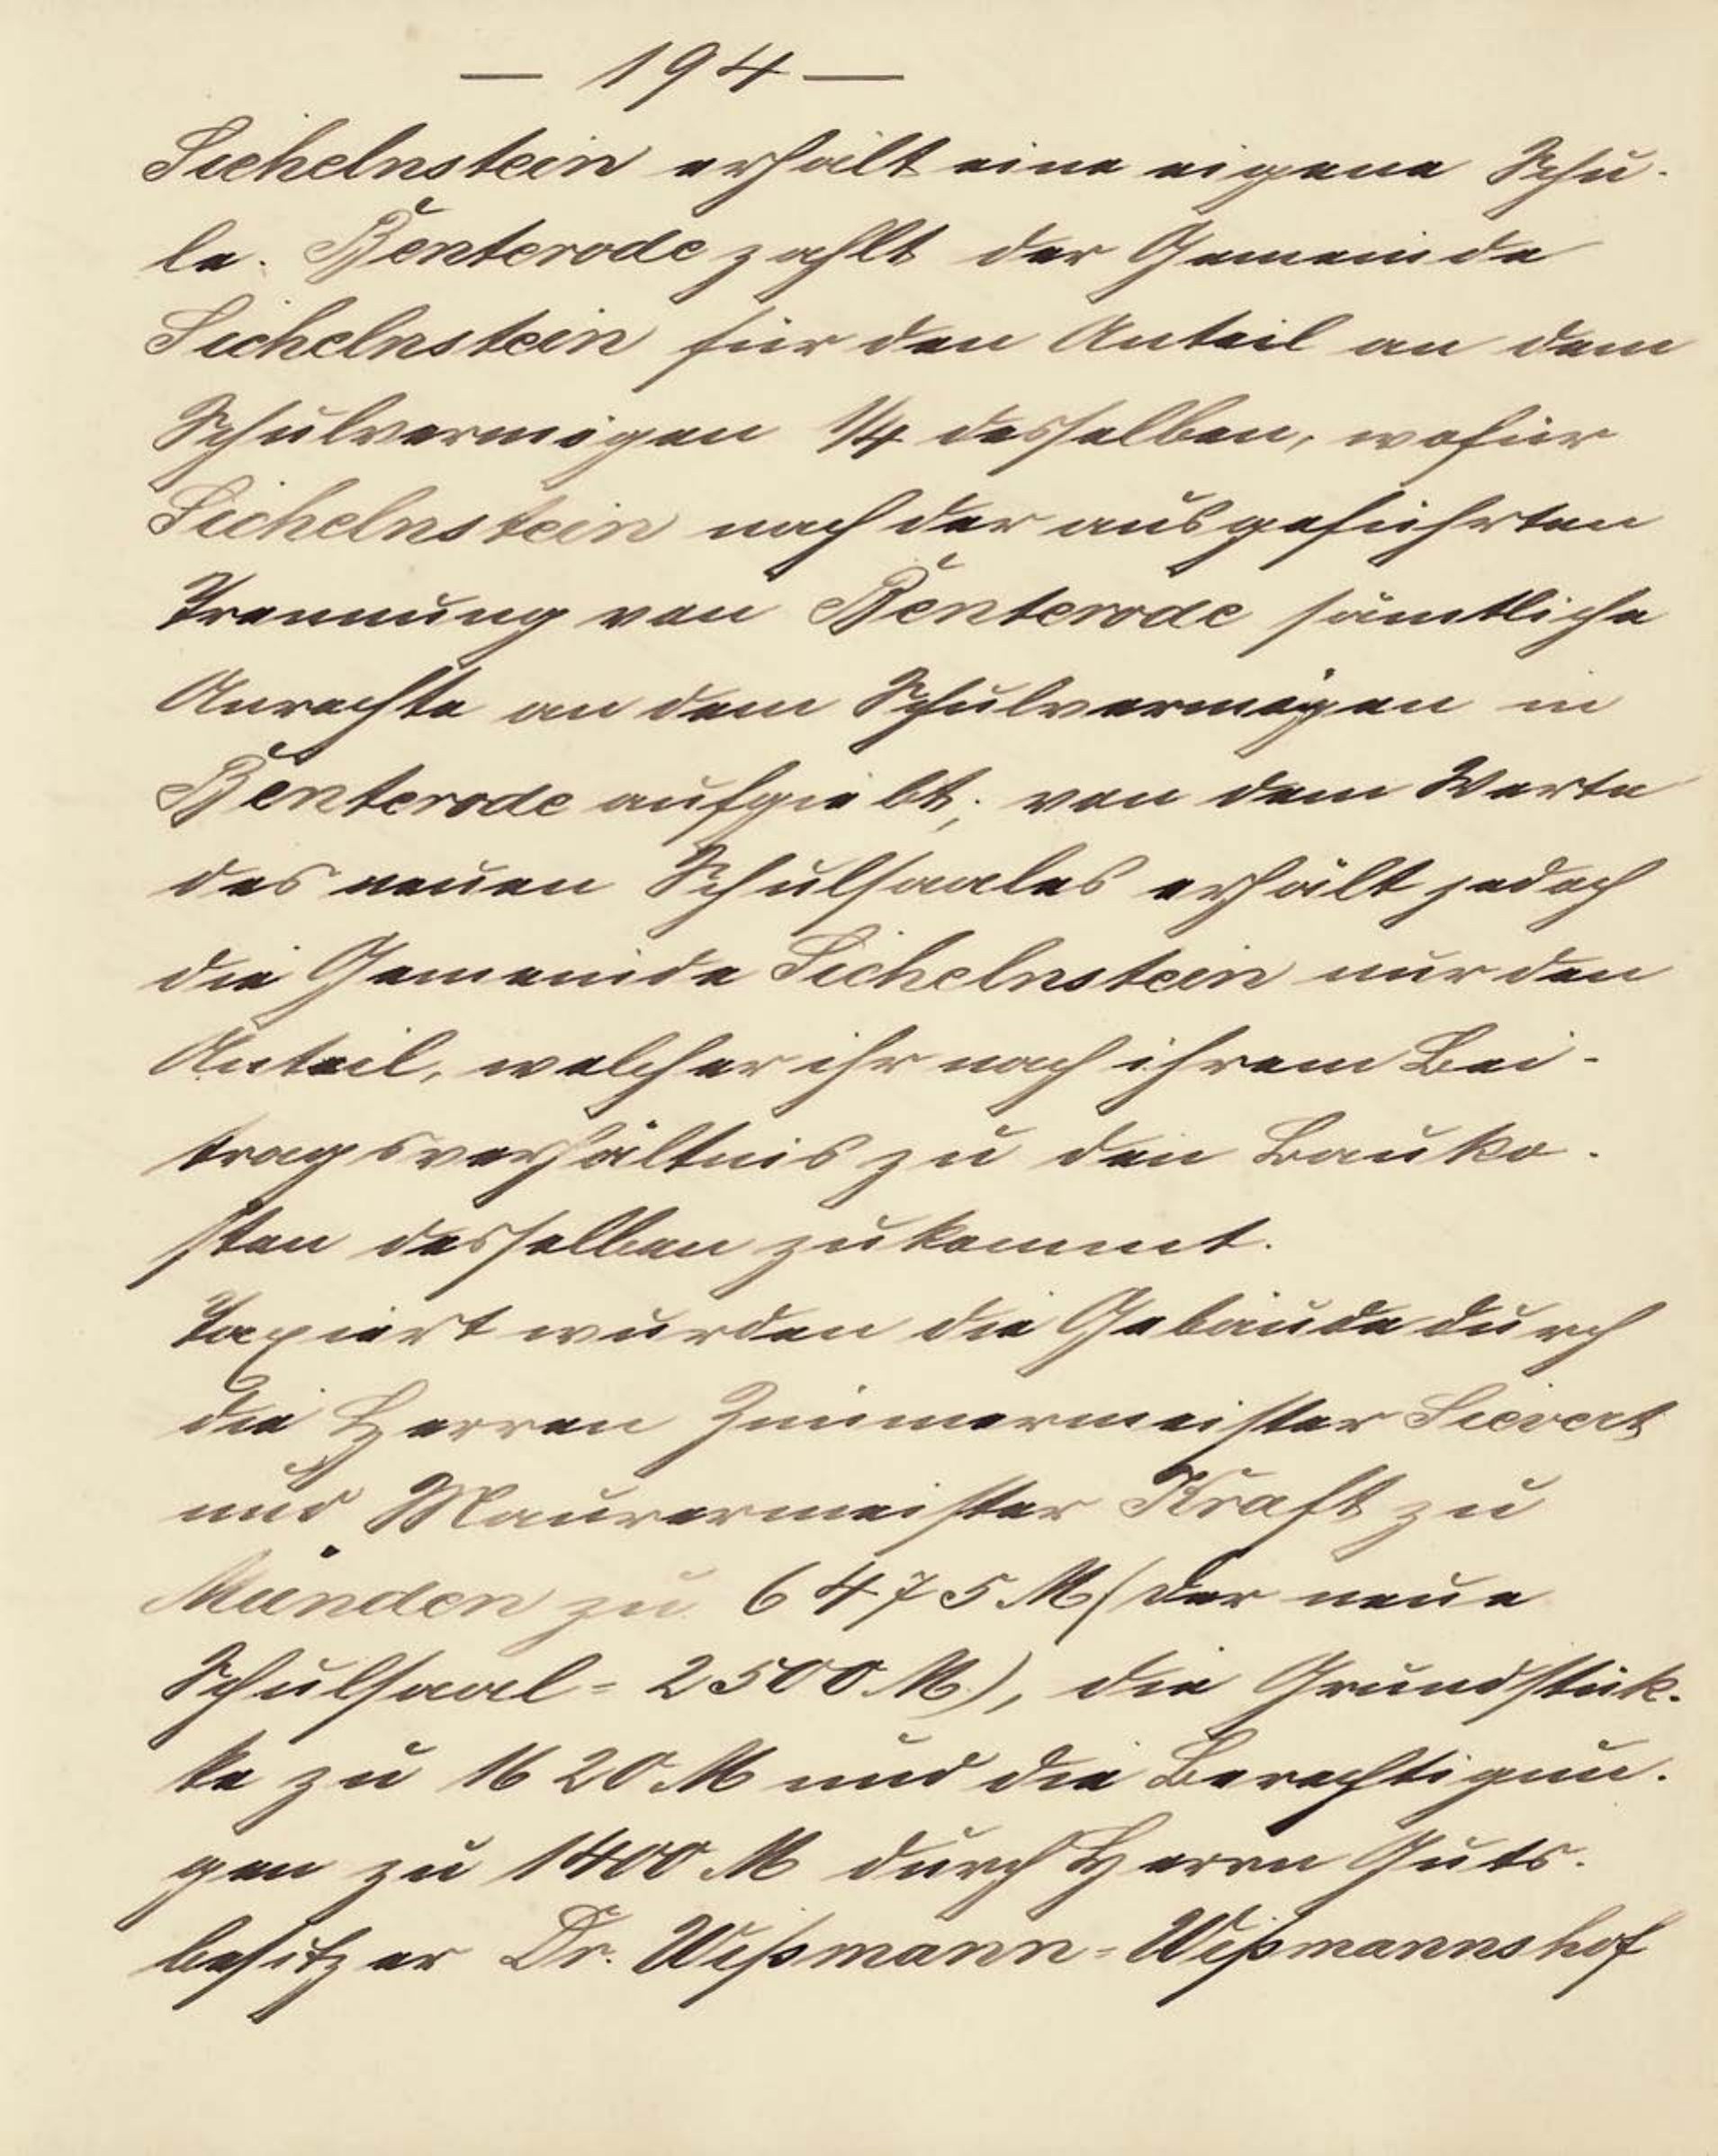 — 194 —
Sichelnstein erhält eine eigene Schu-
le. Benterode zahlt der Gemeinde
Sichelnstein für den Anteil an dem
Schulvermögen 1/4 desselben, wofür
Sichelnstein nach der ausgeführten
Trennung von Benterode sämtliche
Anrechte an dem Schulvermögen in
Benterode aufgiebt; von dem Werte
des neuen Schulsaales erhält jedoch
die Gemeinde Sichelnstein nur den
Anteil, welcher ihr nach ihrem Bei-
tragsverhältnis zu den Bauko-
sten desselben zukommt.
Taxiert wurden die Gebäude durch
die Herren Zimmermeister Sievert
und Maurermeister Kraft zu
Münden zu 6475 M (der neue
Schulsaal = 2500 M), die Grundstük-
ke zu 1620 M und die Berechtigun-
gen zu 1400 M durch Herrn Guts-
besitzer Dr. Wißmann=Wißmannshof